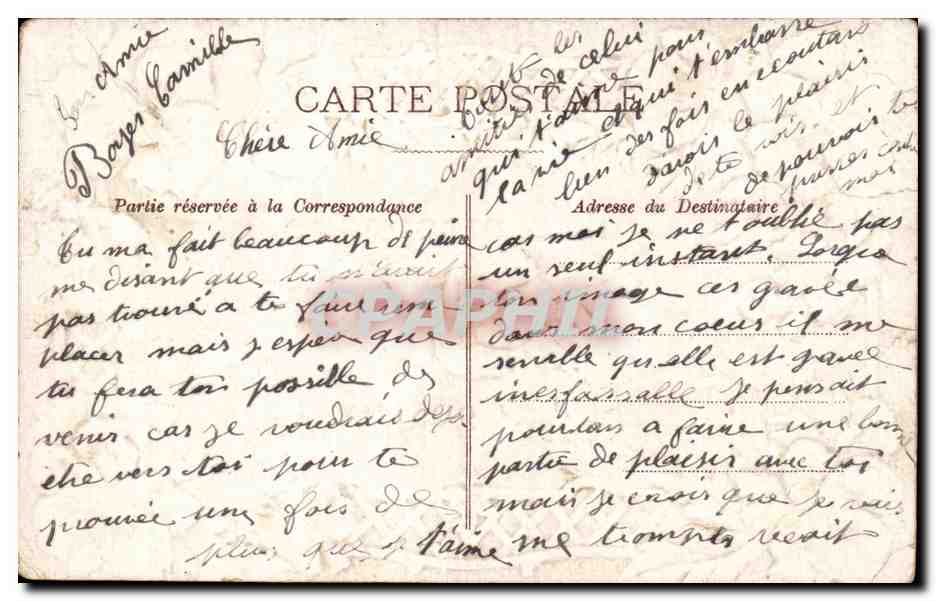 CARTE POSTALE
Chère Amie
Partie réservée à la Correspondance
Tu ma fait beaucoup de peine
me disant que tu n'avait
pas trouvé a te faire rem
placer mais j espère que
tu fera ton possible de
venir car je voudrais deja
etre vers toi pour te
prouvée une fois de
plus que je t'aime
Adresse du Destinataire
car moi je ne t'oublie pas
un seul instant. Lorque
ton image ces gravée
dans mon coeur il me
semble qu elle est gravée
inesfassable je pensait
pourtans a faire une bonne
partie de plaisir avec toi
mais je crois que je vais
me trompés reçoit
les
amitiés de celui
qui t'aime pour
la vie et qui t'embrasse
bien des fois en ecoutans
davoir le plaisir
de te voir et
de pouvoir te
Ami
Boyer Camille
CPAPHIL